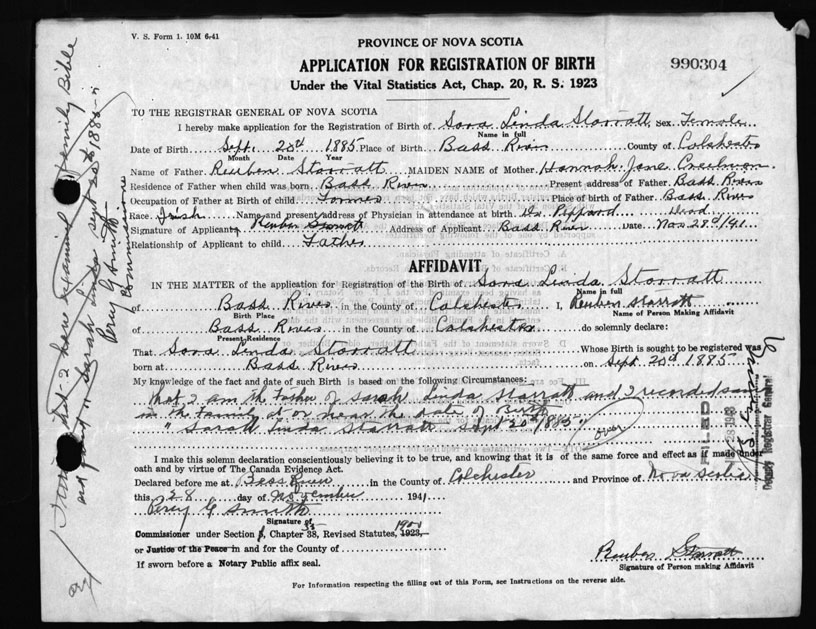 V. S. Form 1. 10M 6-41
PROVINCE OF NOVA SCOTIA
APPLICATION FOR REGISTRATION OF BIRTH
Under the Vital Statistics Act, Chap. 20, R. S. 1923
990304
TO THE REGISTRAR GENERAL OF NOVA SCOTIA
I hereby make application for the Registration of Birth of Sara Linda Starratt Sex Female
Name in full
Date of Birth Sept. 20th 1885 Place of Birth Bass River County of Colchester
Month Date Year
Name of Father Reuben Starratt MAIDEN NAME of Mother Hannah Jane Creelman
Residence of Father when child was born Bass River Present address of Father Bass River
Occupation of Father at Birth of child Farmer Place of birth of Father Bass River
Race Irish Name and present address of Physician in attendance at birth Dr Peppard Dead
Signature of Applicant Reuben Starratt Address of Applicant Bass River Date Nov 28th/41
Relationship of Applicant to child Father
AFFIDAVIT
IN THE MATTER of the application for Registration of the Birth of Sara Linda Starratt
Name in full
of Bass River in the County of Colchester I, Reuben Starratt
Birth Place Name of Person Making Affidavit
of Bass River in the County of Colchester do solemnly declare:
Present Residence
That Sara Linda Starratt Whose Birth is sought to be registered was
born at Bass River on Sept 20th 1885
My knowledge of the fact and date of such Birth is based on the following Circumstances:
that I am the Father of Sarah Linda Starratt and I recorded same
in the Family at or near the date of Birth
" Sarah Linda Starratt Sept 20 1885"
over
I make this solemn declaration conscientiously believing it to be true, and knowing that it is of the same force and effect as if made under
oath and by virtue of The Canada Evidence Act.
Declared before me at Bass River in the County of Colchester and Province of Nova Scotia
this 28 day of November 1941
Percy G Smith
Signature of
Commissioner under Section 5, Chapter 38, Revised Statutes, 1923, 1900
or Justice of the Peace in and for the County of
If sworn before a Notary Public affix seal.
Reuben Starratt
Signature of Person making Affidavit
For Information respecting the filling out of this Form, see Instructions on the reverse side.
that I have examined Family Bible
and found Sarah Linda Sept 20th 1885
Percy G Smith
a Commissioner
FILED
Deputy Registrar General